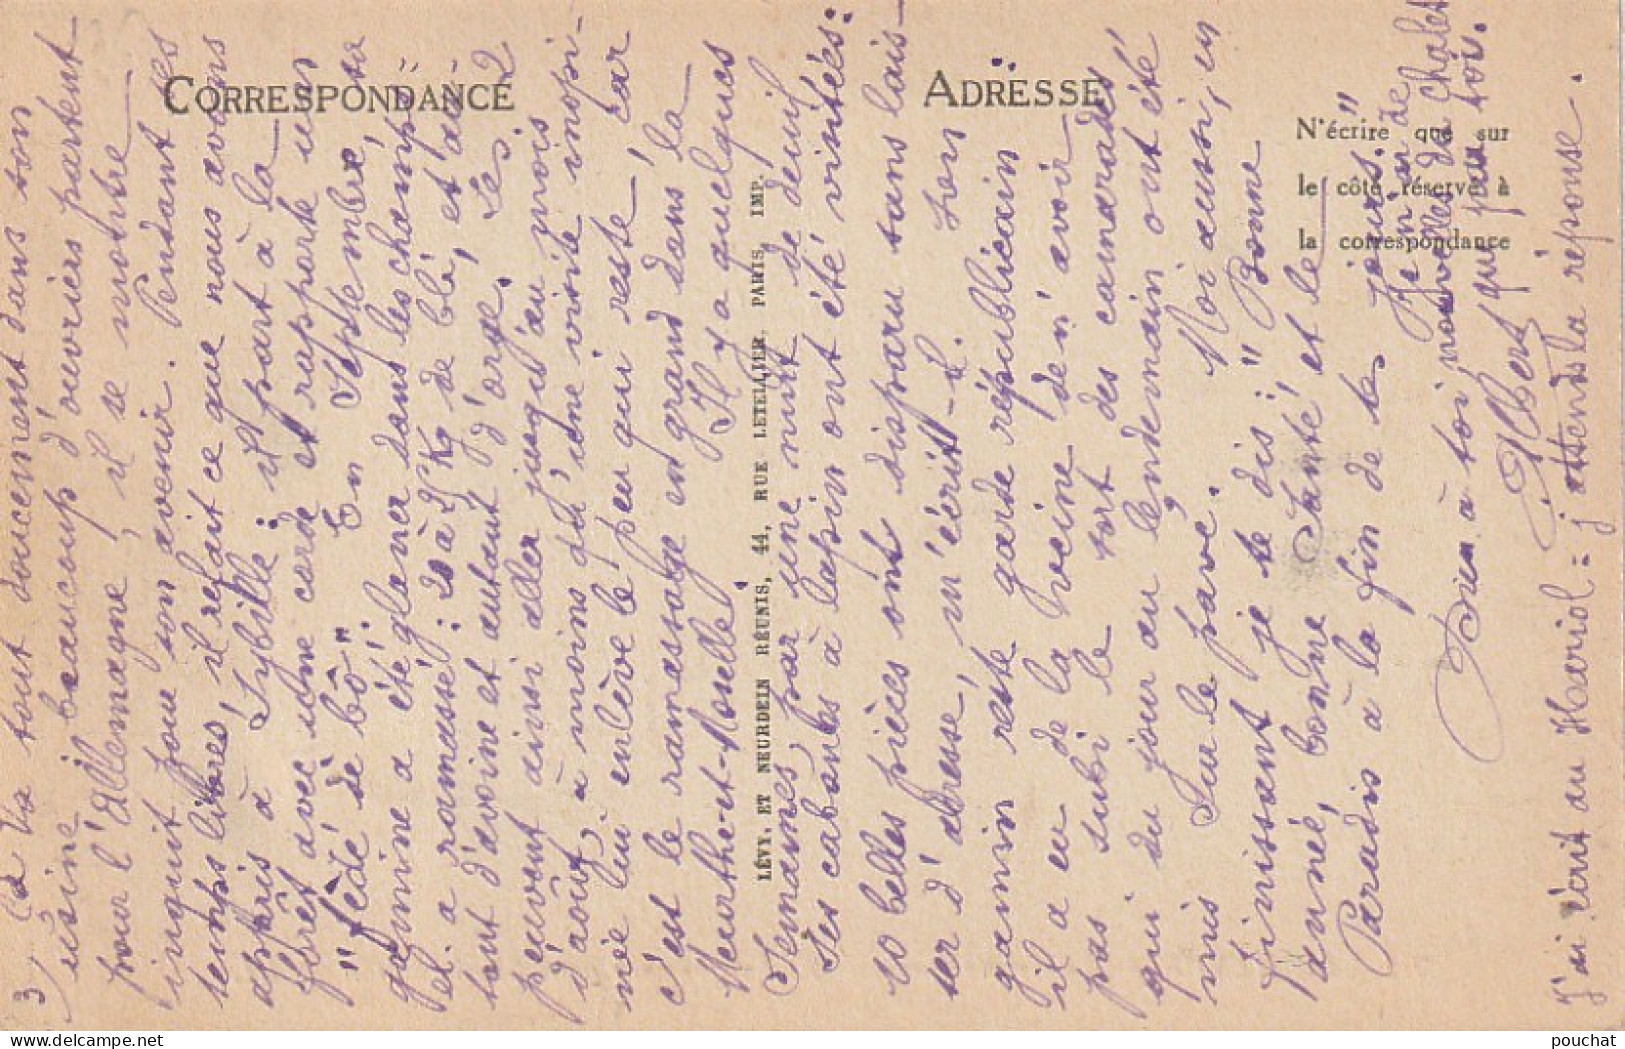 CORRESPONDANCE
ADRESSE
N'écrire que sur
le côté réservé à
la correspondance
LÉVY, ET NEURDEIN RÉUNIS, 44, RUE LETELLIER, PARIS, IMP.
3) Ça va tout doucement dans son
usine beaucoup d'ouvriers partent
pour l'Allemagne, il se montre
inquiet pour son avenir. Pendant ses
temps libres, il refait ce que nous avons
appris à Sybille: il part à la
forêt avec une corde et rapporte un
"fédé sè bô". En Septembre, sa
gamine a été glaner dans les champs
et a ramassé: 20 à 25 Kg de blé, et au-
tant d'avoine et autant d'orge. Ses 2
peuvent ainsi aller jusqu'au mois
d'août, à moins qu'une visite inopi-
née lui enlève le peu qui reste, car
c'est le ramassage en grand dans la
Meurthe-et-Moselle. Il y a quelques
Semaines, par une nuit de deuil
Ses cabanes à lapin ont été visitées:
10 belles pièces ont disparu sans lais-
ser d'adresse, m'écrit-il. Son
gamin reste garde républicain
il a eu de la veine de n'avoir
pas subi le sort des camarades
qui du jour au lendemain ont été
mis sur le pavé. Moi aussi, en
finissant je te dis: "Bonne
année, bonne Santé et le
Paradis à la fin de tes jours."
Je n'ai de
nouvelles de Chalet
que par toi.
Bien à toi
Albert
J'ai écrit au Hariol = j'attends la réponse.
pouchat